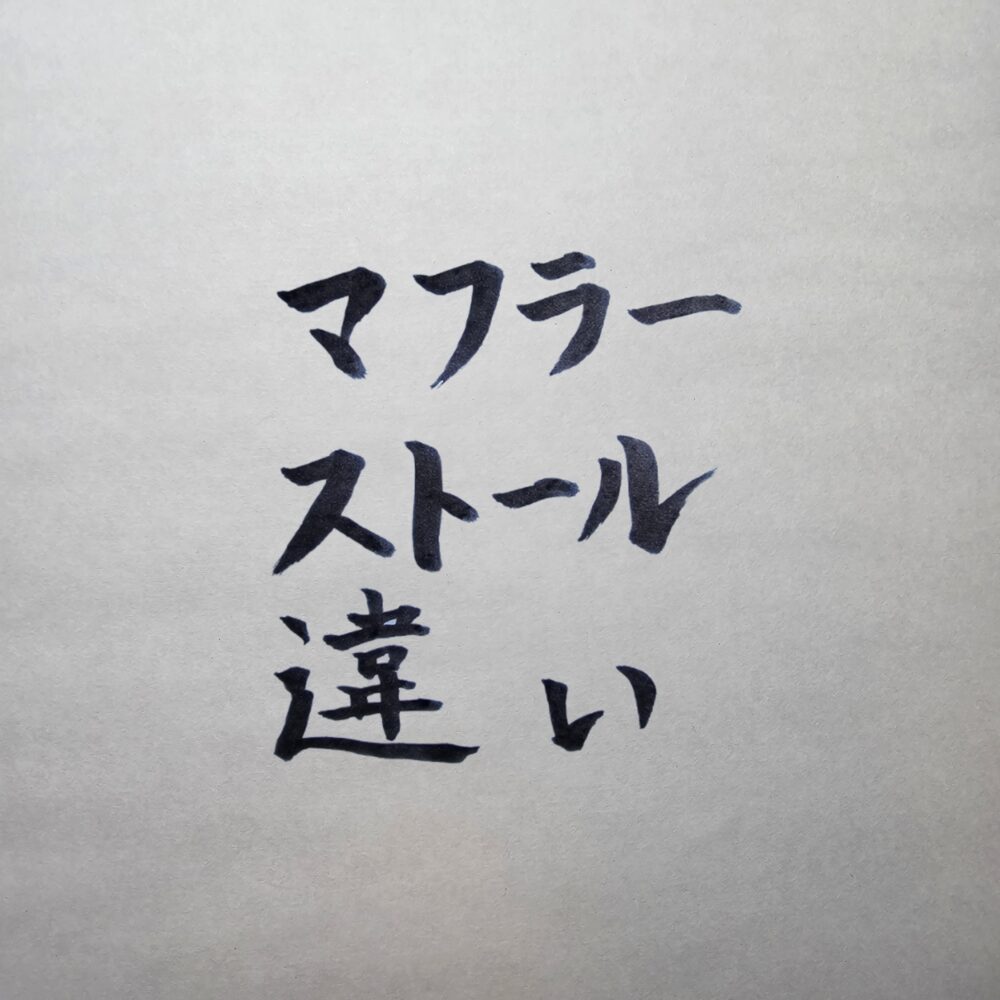 マフラー
ストール
違い